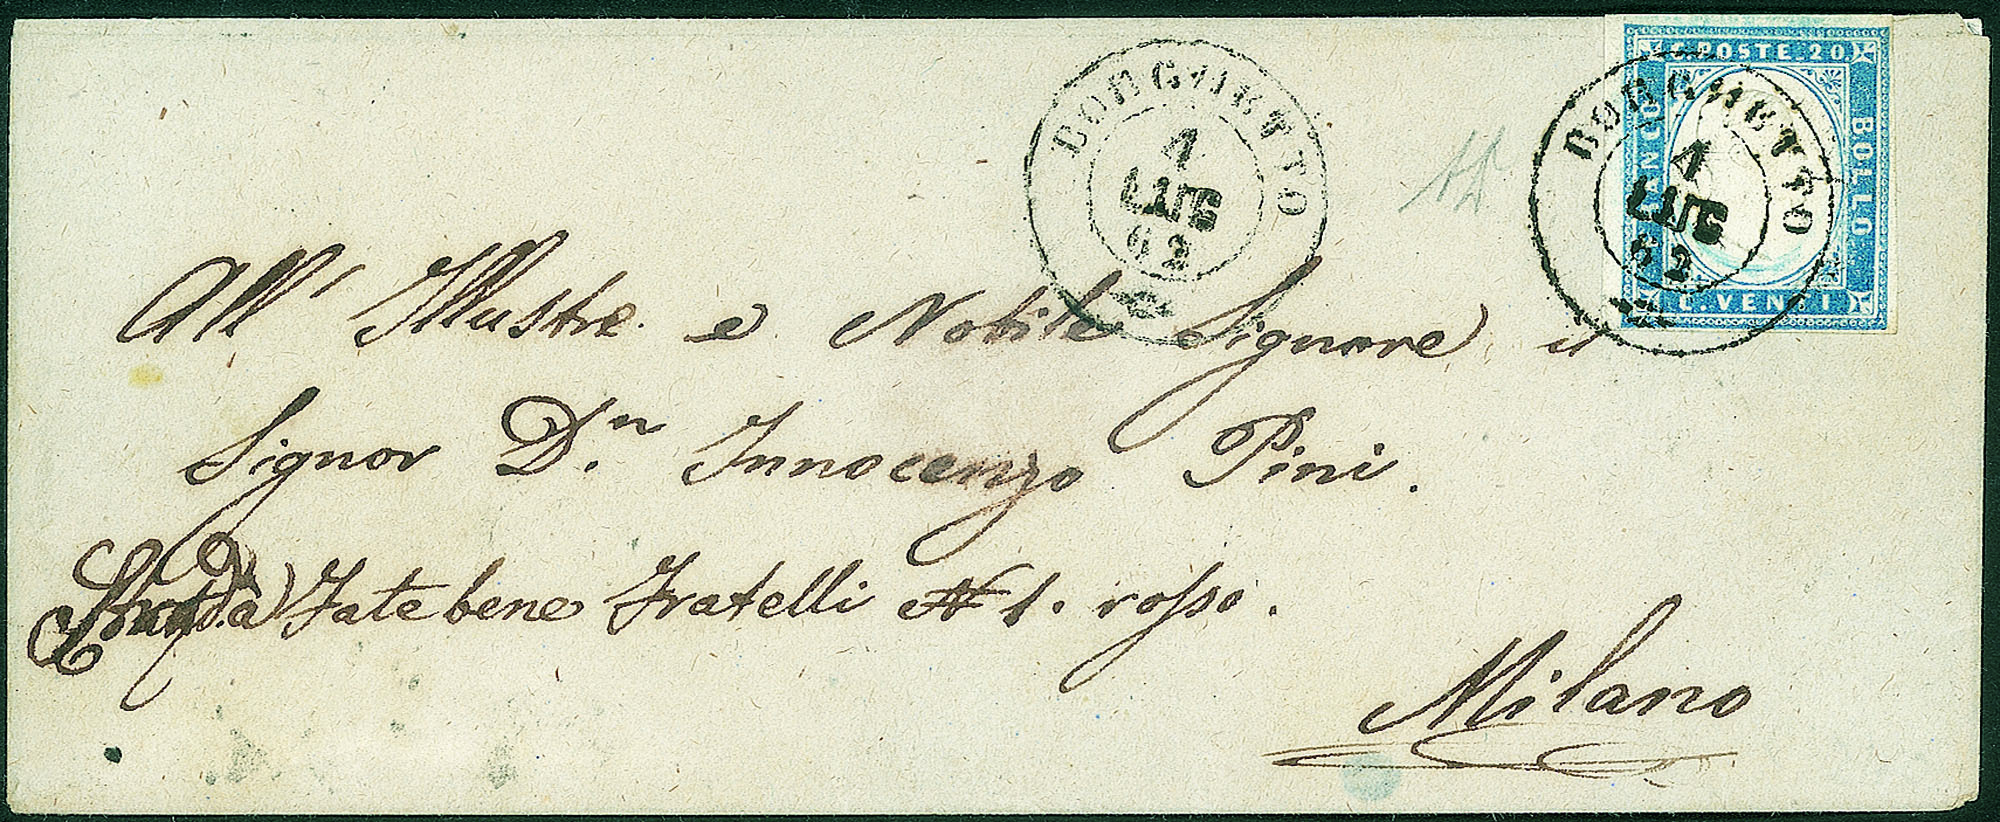 BORGHETTO
4
LUG
62
C. POSTE. 20.
FRANCO
BOLLO
C. VENTI
BORGHETTO
4
LUG
62
All' Illustre e Nobile Signore il
Signor Dn. Innocenzo Pini.
Strada Fate bene Fratelli N 1. rosso.
Milano